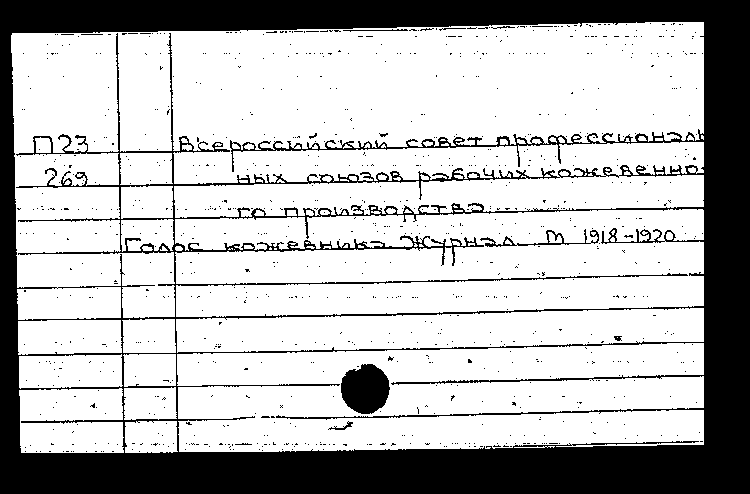 П23 Всероссийский совет профессиональ
269 ных союзов рабочих кожевенно-
го производства
Голос кожевника Журнал М 1918-1920